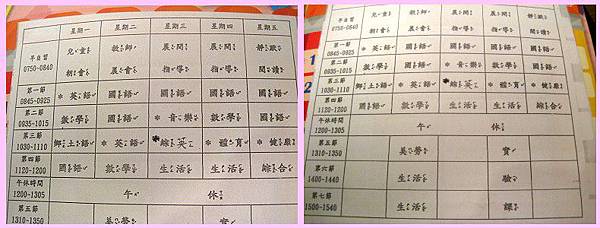 星期一 星期二 星期三 星期四 星期五
早自習 兒童 教師 晨間 晨間 靜思
0750-0840 朝會 晨會 指導 指導 閱讀
第一節 *英語 國語 國語 國語 國語
0845-0925
第二節 數學 國語 *音樂 數學 數學
0935-1015
第三節 鄉土語 *英語 *綜英 *體育 *健康
1030-1110
第四節 國語 數學 生活 生活 綜合
1120-1200
午休時間 午 休
1200-1305
第五節 美勞 實
1310-1350
0750-0840 朝會 晨會 指導 指導 閱讀
第一節 *英語 國語 國語 國語 國語
0845-0925
第二節 數學 國語 *音樂 數學 數學
0935-1015
第三節 鄉土語 *英語 *綜英 *體育 *健康
1030-1110
第四節 國語 數學 生活 生活 綜合
1120-1200
午休時間 午 休
1200-1305
第五節 美勞 實
1310-1350
第六節 生活 驗
1400-1440
第七節 生活 課
1500-1540